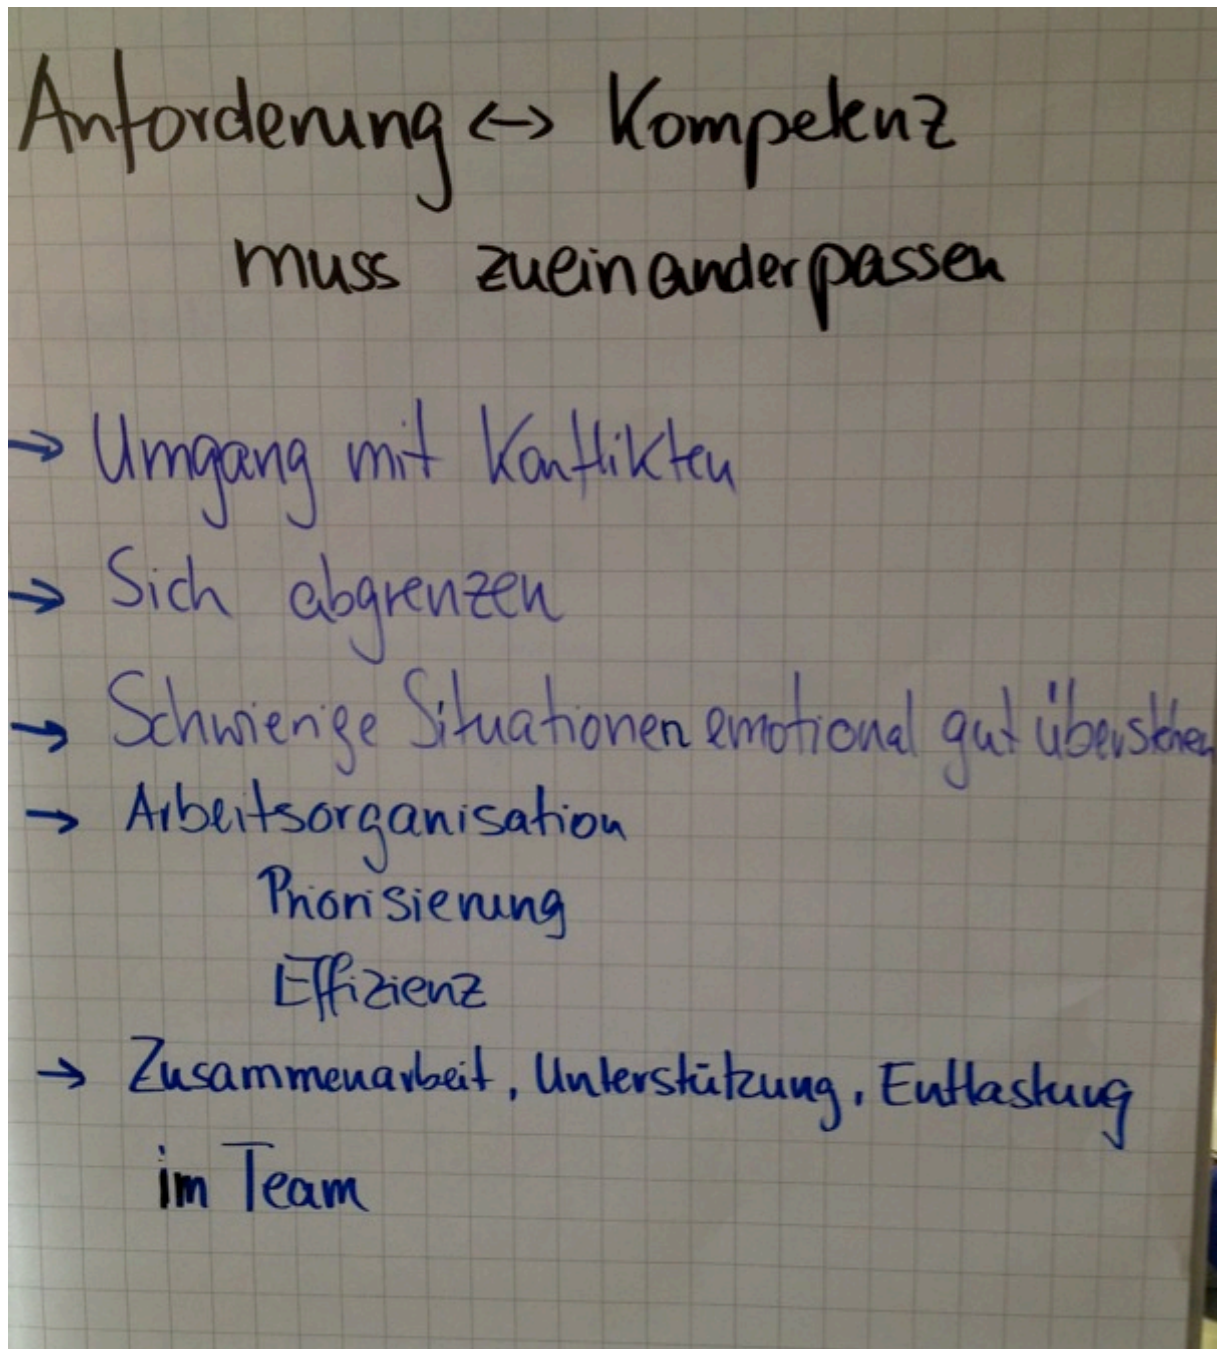 Anforderung ↔ Kompetenz
muss zueinanderpassen
→ Umgang mit Konflikten
→ Sich abgrenzen
→ Schwierige Situationen emotional gut überstehen
→ Arbeitsorganisation
Priorisierung
Effizienz
→ Zusammenarbeit, Unterstützung, Entlastung
im Team